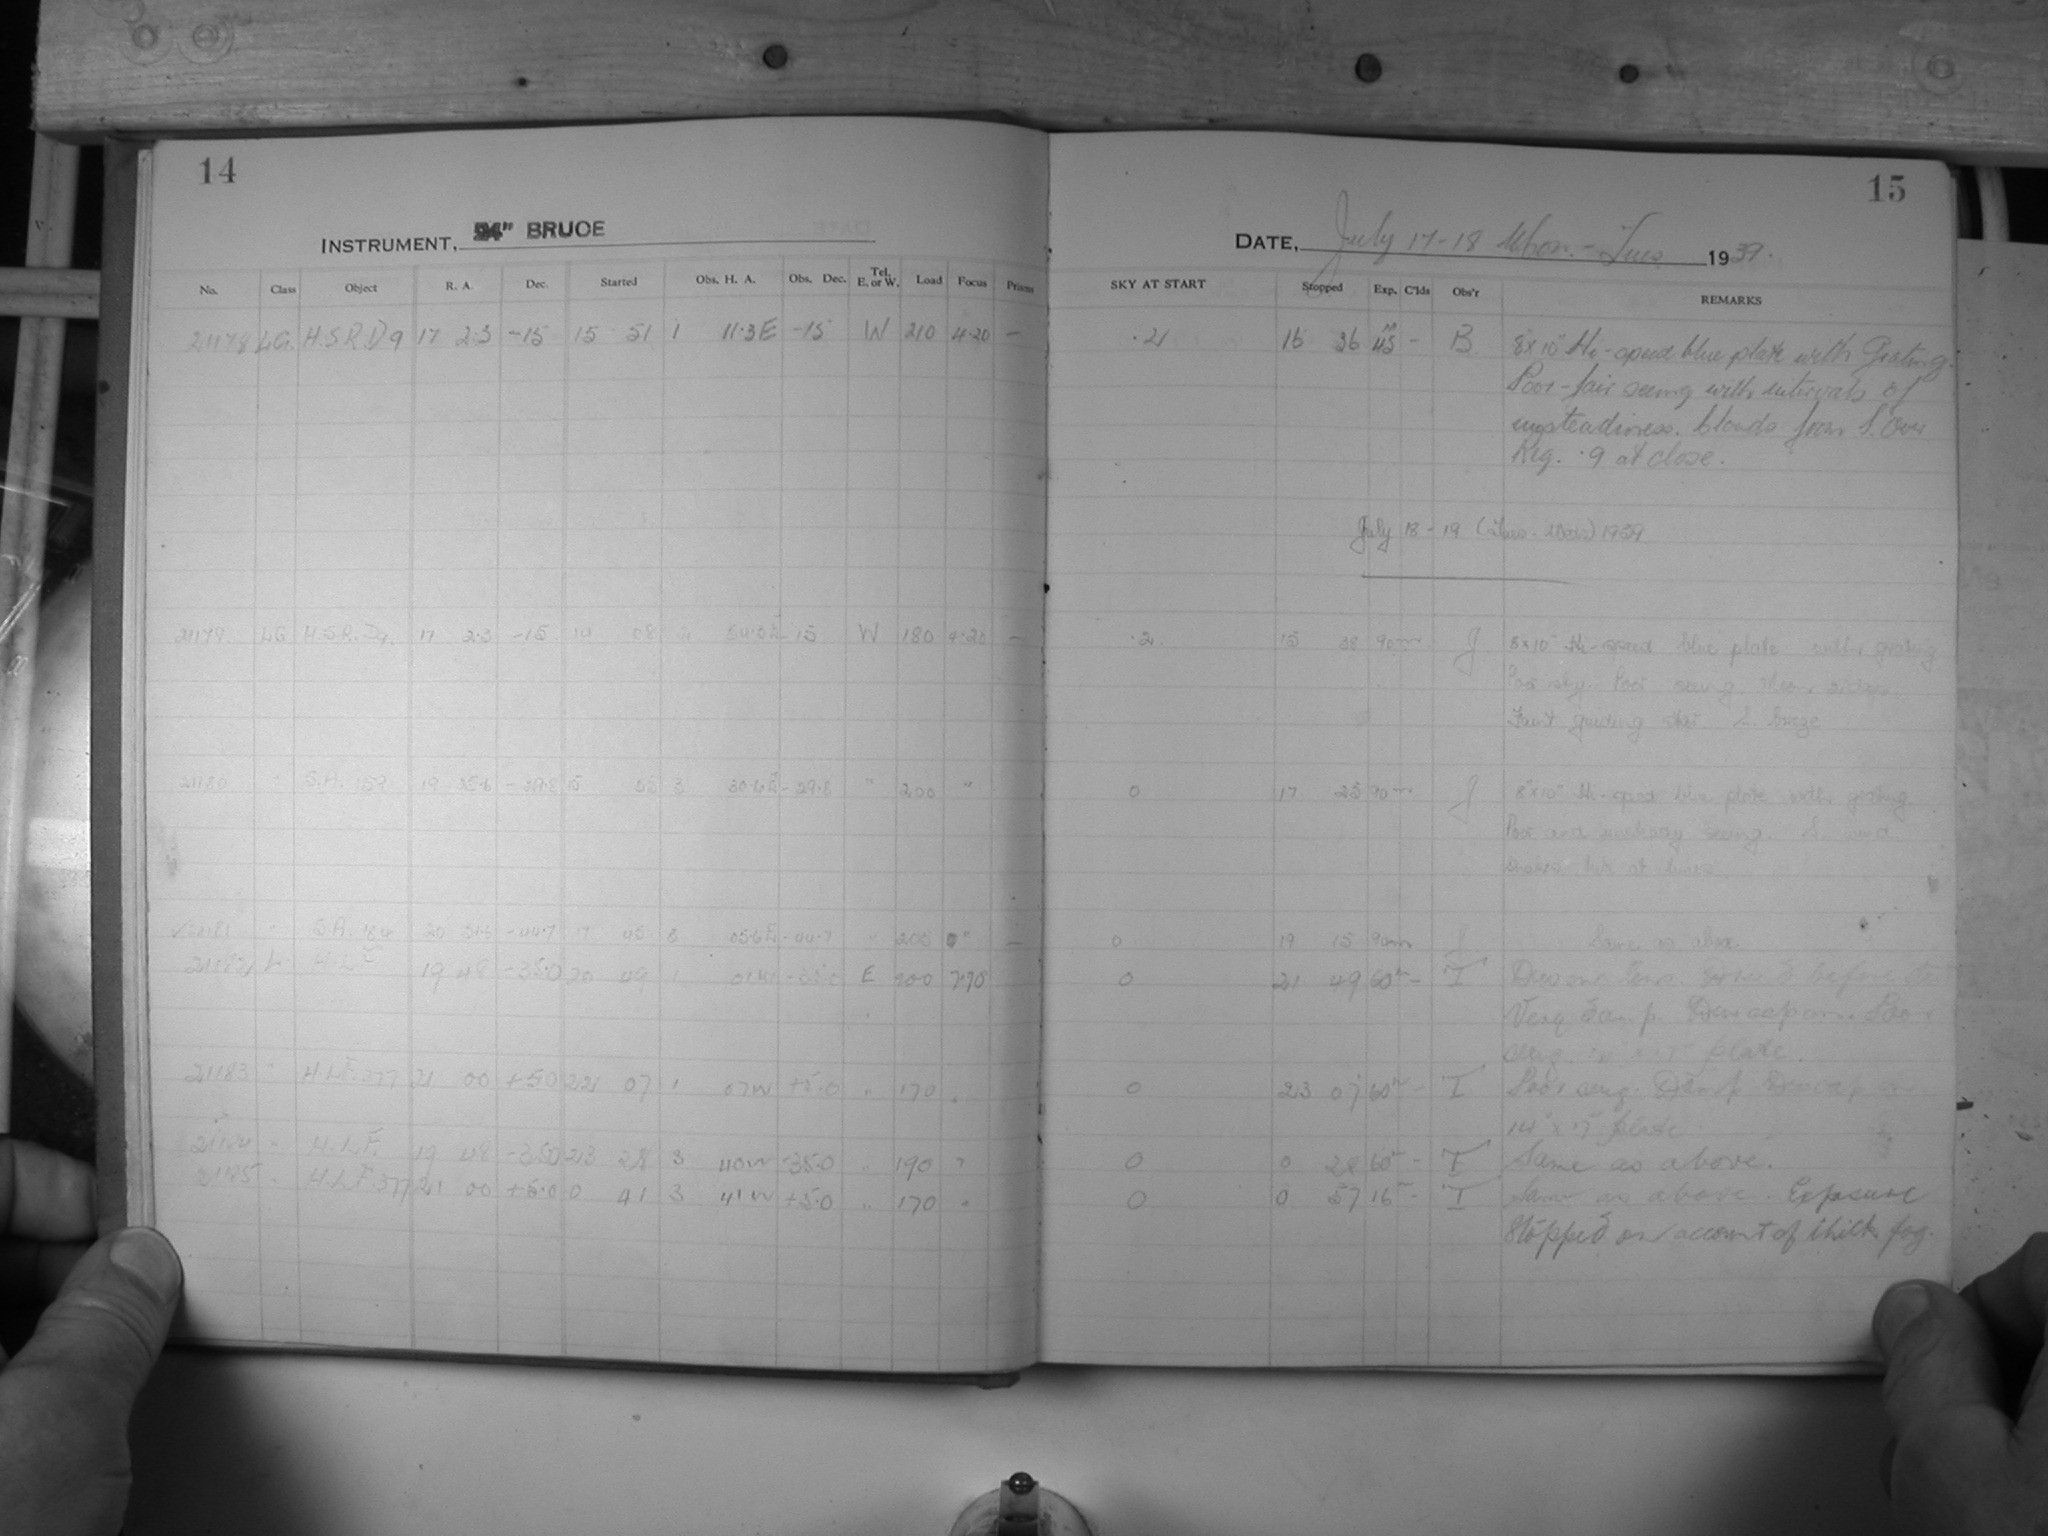 14
INSTRUMENT, 24" BRUCE
No. Class Object R. A. Dec. Started Obs. H. A. Obs. Dec. Tel. E. or W. Load Focus Prisms
21178 LG. H.S.R.D9 17 2.3 -15 15 51 1 11.3E -15 W 210 4.20 —
21179 LG H.S.R.D9. 17 2.3 -15 14 08 54.3E -15 W 180 4.20 —
21180 " S.A. 159 19 35.6 -29.8 15 55 3 30.6E -29.8 " 200 "
21181 " S.A. 184 20 51.5 -44.7 17 45 3 05.6E -44.7 " 205 " —
21182 L H.L.F. 19 48 -35.0 20 49 1 01W -35.0 E 200 7.70
21183 " H.L.F.377 21 00 +5.0 22 07 1 07W +5.0 " 170 "
21184 " H.L.F. 19 48 -35.0 23 28 3 40W -35.0 " 190 "
21185 " H.L.F.377 21 00 +5.0 0 41 3 41W +5.0 " 170 "
15
DATE, July 17-18 Mon. - Tues. 1939.
SKY AT START Stopped Exp. C'lds Obs'r REMARKS
.2 16 36 45m - B. 8x10" Hi-speed blue plate with Grating.
Poor-fair seeing with intervals of
unsteadiness. Clouds from S. Over
Reg. .9 at close.
July 18 - 19 (Tues. Wed) 1939
.2 15 38 90m J 8x10" Hi-speed blue plate with grating
Poor sky. Poor seeing.
Faint guiding star. S. breeze
0 17 25 90m J 8"x10" Hi-speed blue plate with grating
Poor and unsteady seeing. S. wind
at times
0 19 15 90m J Same as above
0 21 49 60m - T Dew on lens. before
Very damp. Dewcap on. Poor
seeing. plate.
0 23 07 60m - T Poor seeing. Damp Dewcap on
14" x 17" plate
0 0 28 60m - T Same as above.
0 0 57 16m - T Same as above. Exposure
stopped on account of thick fog.